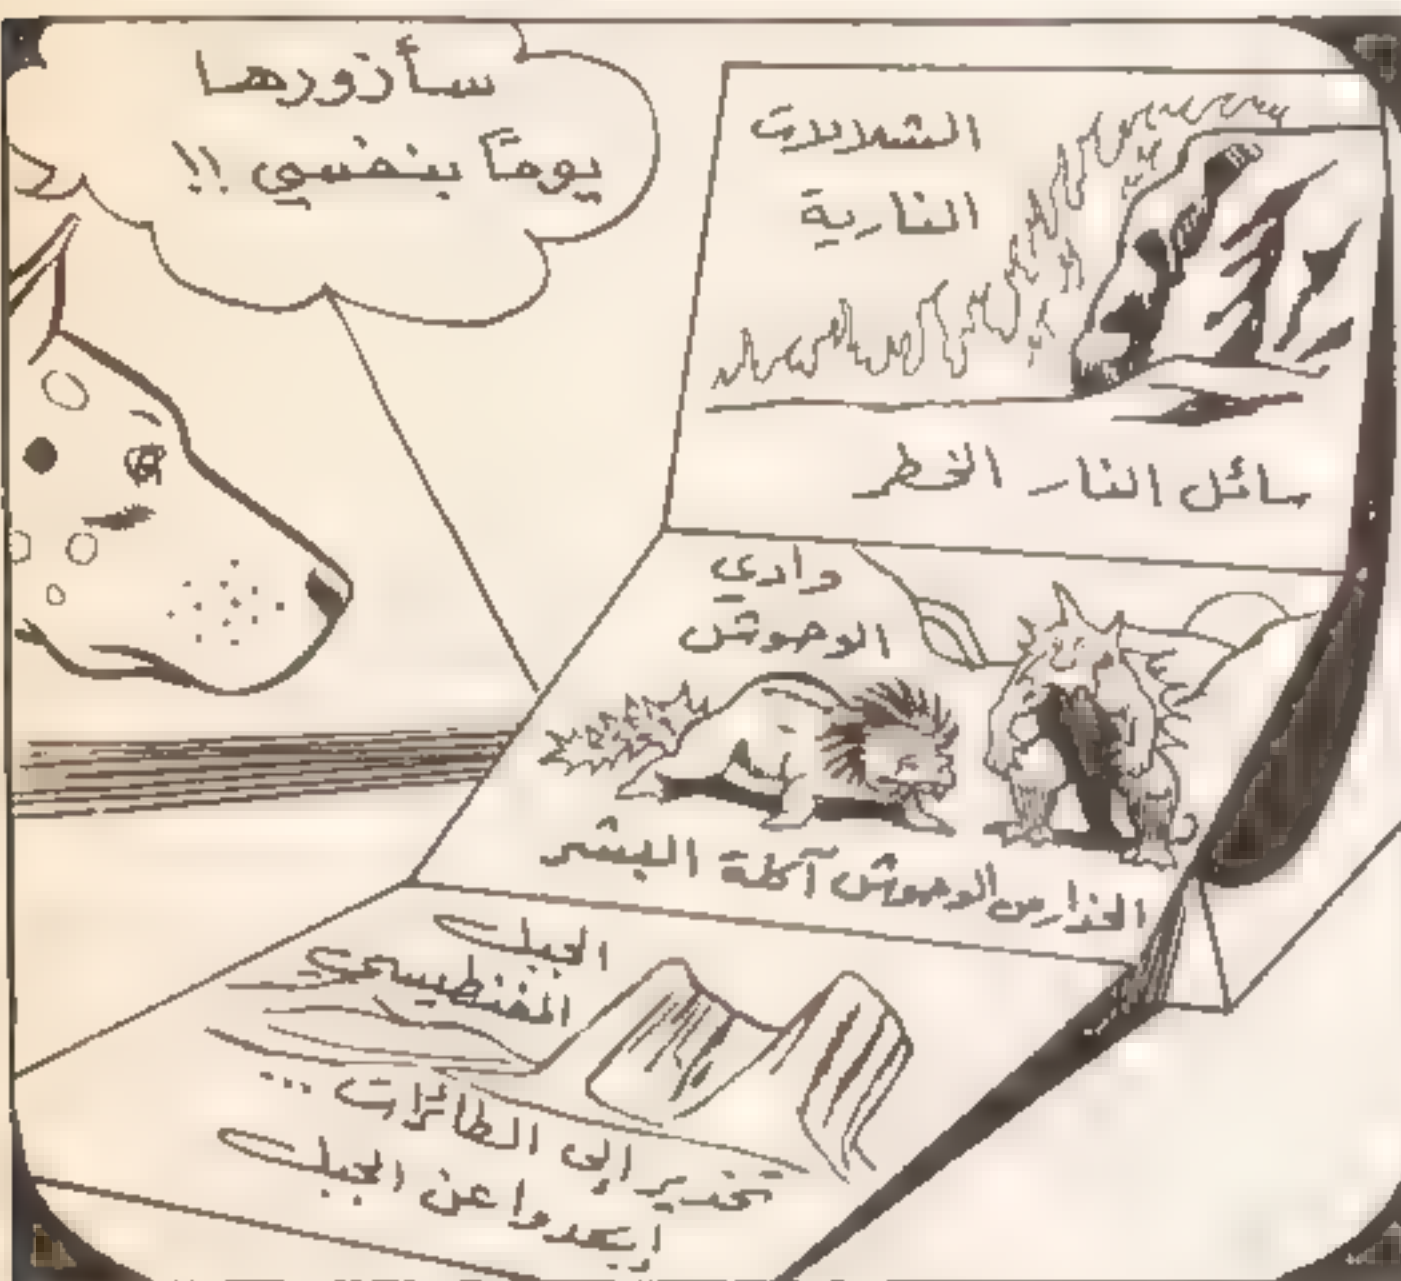 سأزورها
يومًا بنفسي !!
الشلالات
النارية
سائل النار الخطر
وادي
الوحوش
الحذار من الوحوش آكلة البشر
الجبل
المغنطيسي
تحذير إلى الطائرات ...
إبتعدوا عن الجبل